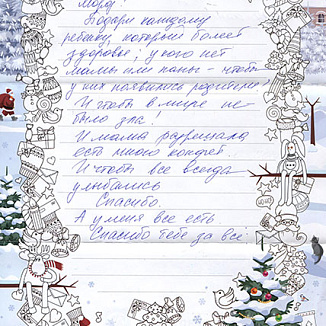 Подари каждому
ребенку, который болеет
здоровье, у кого нет
мамы или папы - чтобы
у них появились родители!
И чтобы в мире не
было зла!
И мама разрешала
есть много конфет.
И чтобы все всегда
улыбались
Спасибо.
А у меня все есть.
Спасибо тебе за всё